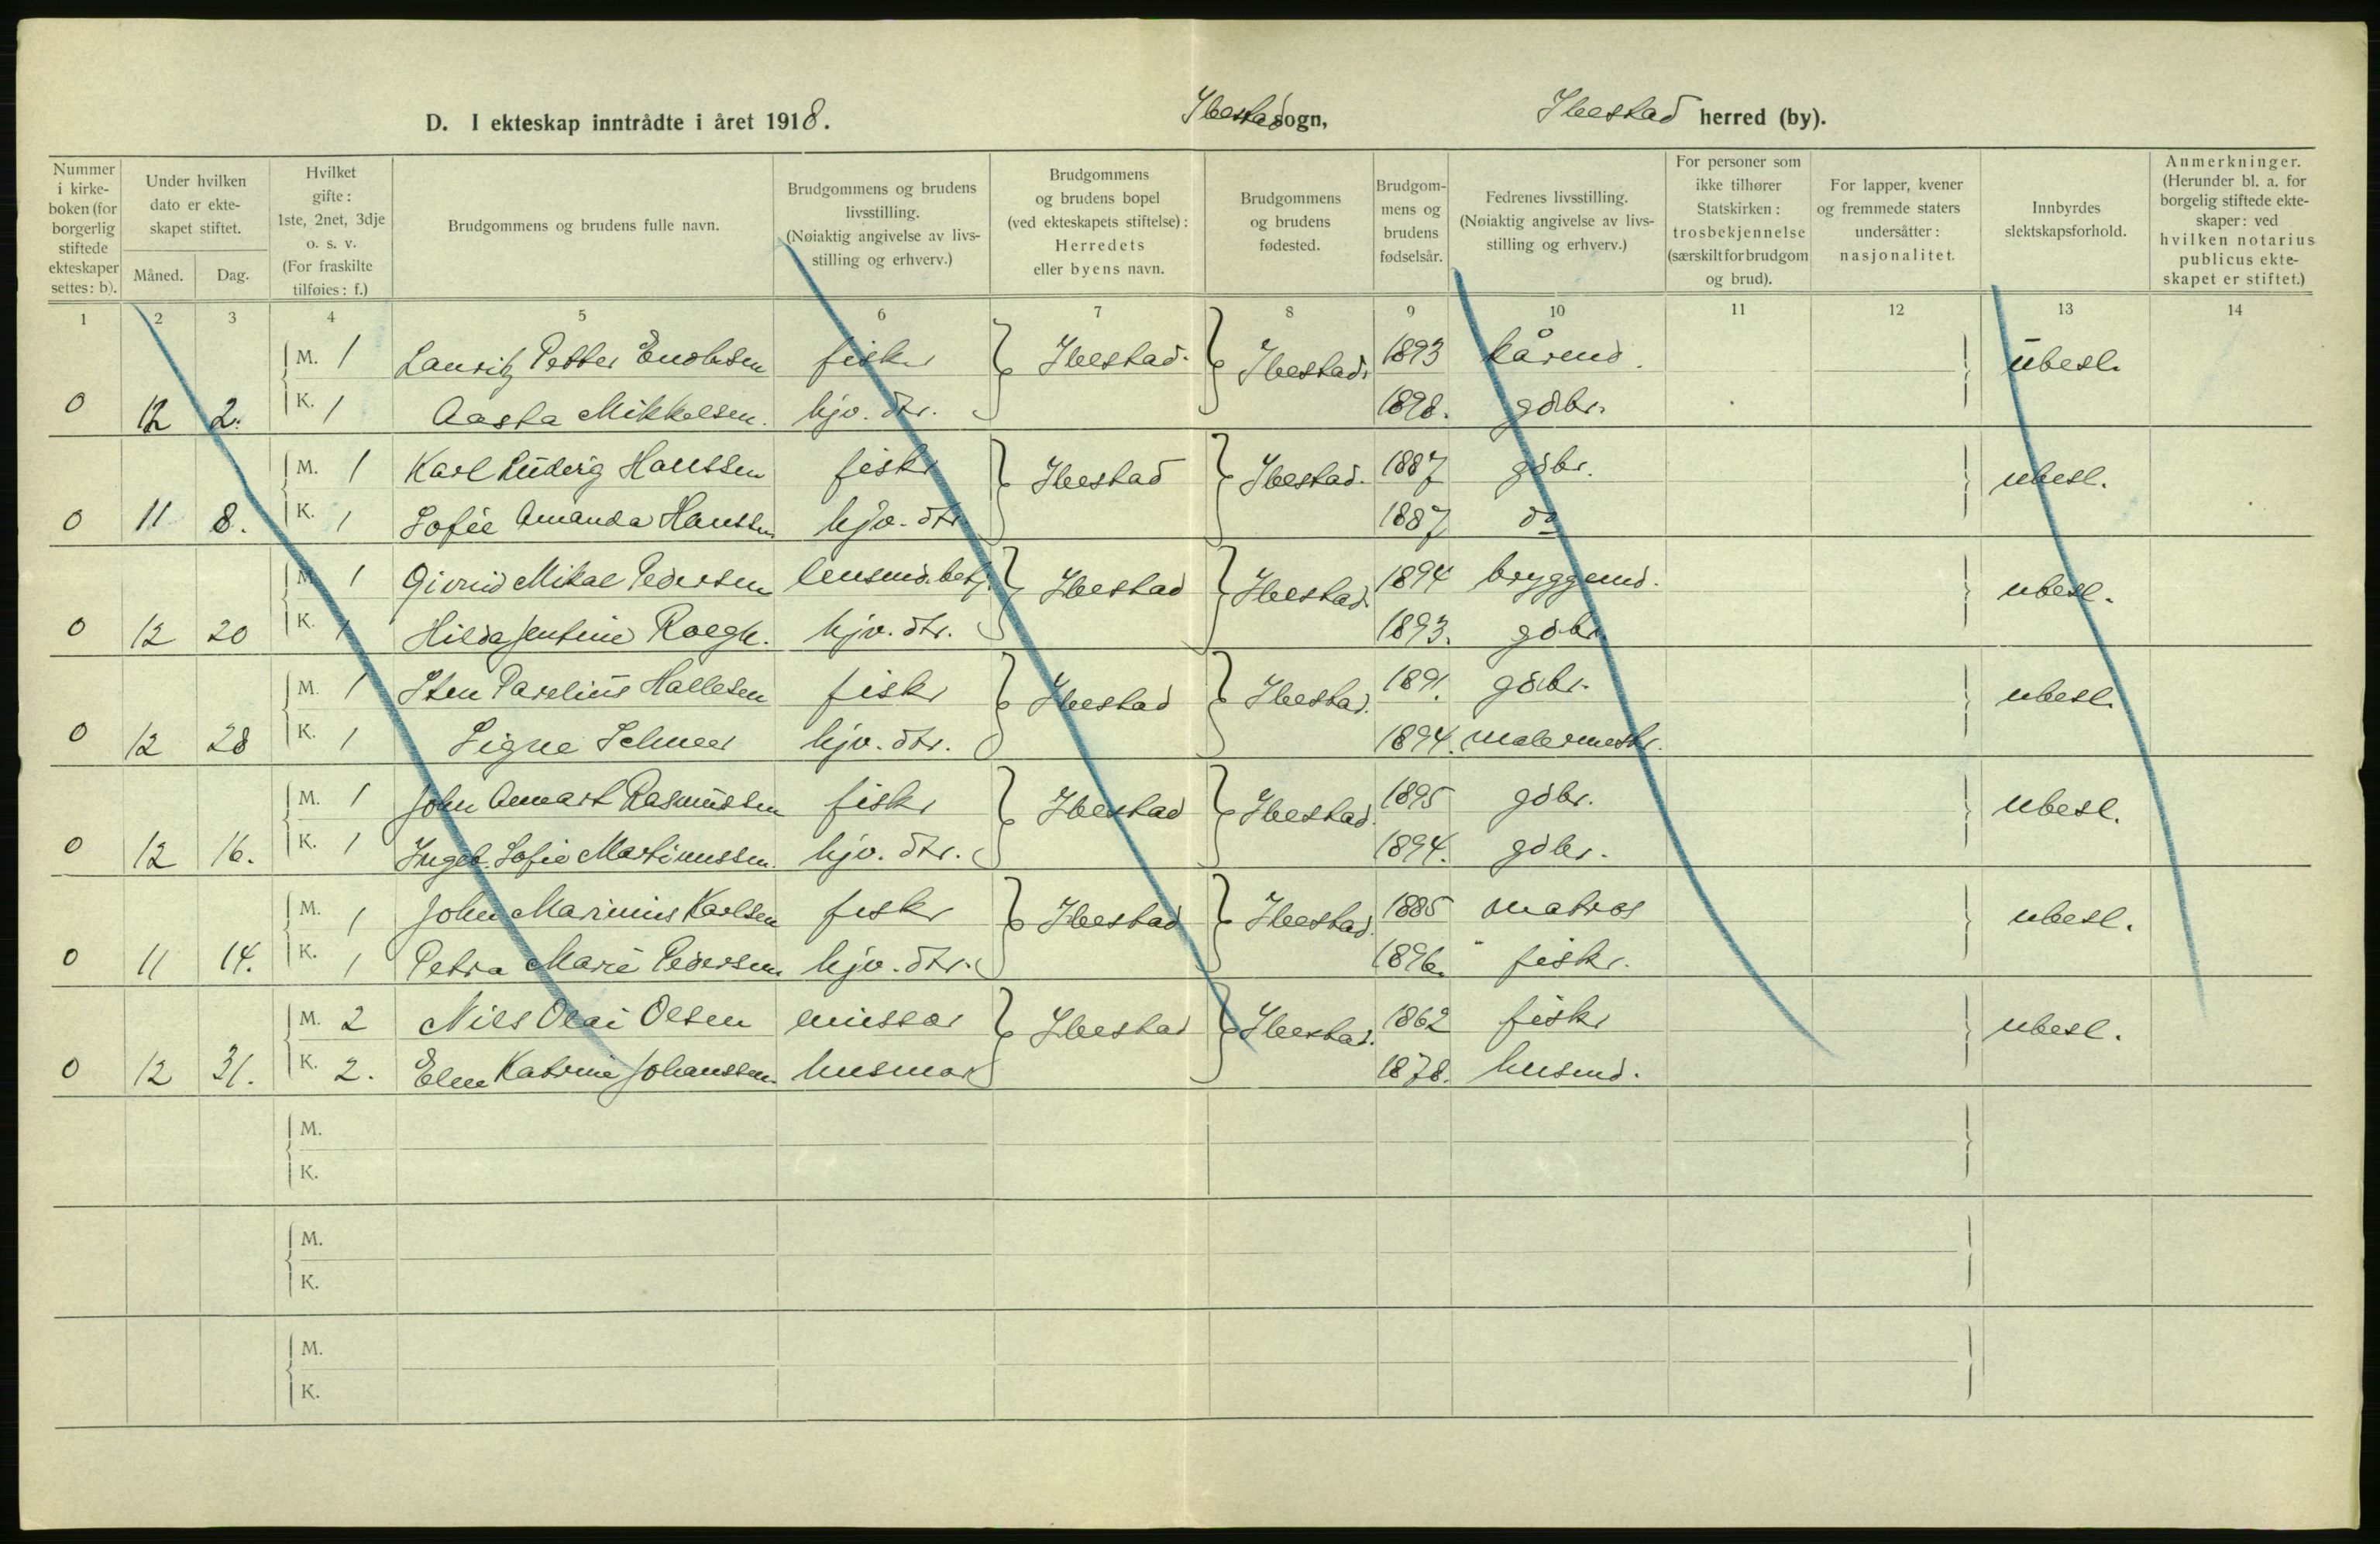 D. I ekteskap inntrådte i året 1918. Ibestad sogn, Ibestad herred (by).
Nummer i kirkeboken (for borgerlig stiftede ekteskaper settes: b).
Under hvilken dato er ekteskapet stiftet.
Måned. Dag.
Hvilket gifte: 1ste, 2net, 3dje o. s. v. (For fraskilte tilføies: f.)
Brudgommens og brudens fulle navn.
Brudgommens og brudens livsstilling. (Nøiaktig angivelse av livsstilling og erhverv.)
Brudgommens og brudens bopel (ved ekteskapets stiftelse): Herredets eller byens navn.
Brudgommens og brudens fødested.
Brudgommens og brudens fødselsår.
Fedrenes livsstilling. (Nøiaktig angivelse av livsstilling og erhverv.)
For personer som ikke tilhører Statskirken: trosbekjennelse (særskilt for brudgom og brud).
For lapper, kvener og fremmede staters undersåtter: nasjonalitet.
Innbyrdes slektskapsforhold.
Anmerkninger. (Herunder bl. a. for borgelig stiftede ekteskaper: ved hvilken notarius publicus ekteskapet er stiftet.)
1 2 3 4 5 6 7 8 9 10 11 12 13 14
M. 1 Lauritz Petter Enoksen fiskr Ibestad. Ibestad. 1893 kårmd. ubesl.
0 12 2. K. 1 Aasta Mikkelsen. hjv. dtr. 1898. gdbr.
M. 1 Karl Ludvig Hanssen fiskr Ibestad Ibestad. 1887 gdbr. ubesl.
0 11 8. K. 1 Sofie Amanda Hanssen hjv. dtr 1887 do
M. 1 Mikal Pedersen lensmd. betj. Ibestad Ibestad. 1894 bryggemd. ubesl.
0 12 20 K. 1 Hilda Jentine hjv. dtr. 1893. gdbr
M. 1 Sten Parelius Hallesen fiskr Ibestad Ibestad. 1891. gdbr. ubesl.
0 12 28 K. 1 Signe hjv. dtr. 1894. malermestr.
M. 1 John Rasmussen fiskr Ibestad Ibestad. 1895 gdbr. ubesl.
0 12 16. K. 1 Ingeb. Sofie Martinussen. hjv. dtr. 1894. gdbr.
M. 1 John Marinius Karlsen fiskr Ibestad Ibestad. 1885 matros ubesl.
0 11 14. K. 1 Petra Marie Pedersen hjv. dtr. 1896. " fiskr.
M. 2 Nils Olai Olsen Ibestad Ibestad. 1862 fiskr ubesl.
0 12 31. K. 2. Elen Katrine Johanssen. husmor 1878. husmd.
M.
K.
M.
K.
M.
K.